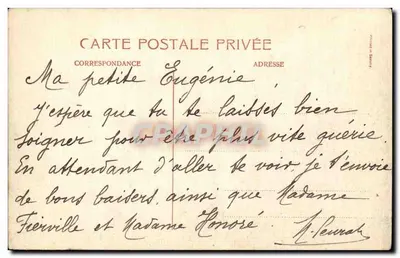 CARTE POSTALE PRIVÉE
CORRESPONDANCE
ADRESSE
Ma petite Eugénie
J'espère que tu te laisses bien
soigner pour être plus vite guérie.
En attendant d'aller te voir, je t'envoie
de bons baisers, ainsi que Madame
Fierville et Madame Honoré.